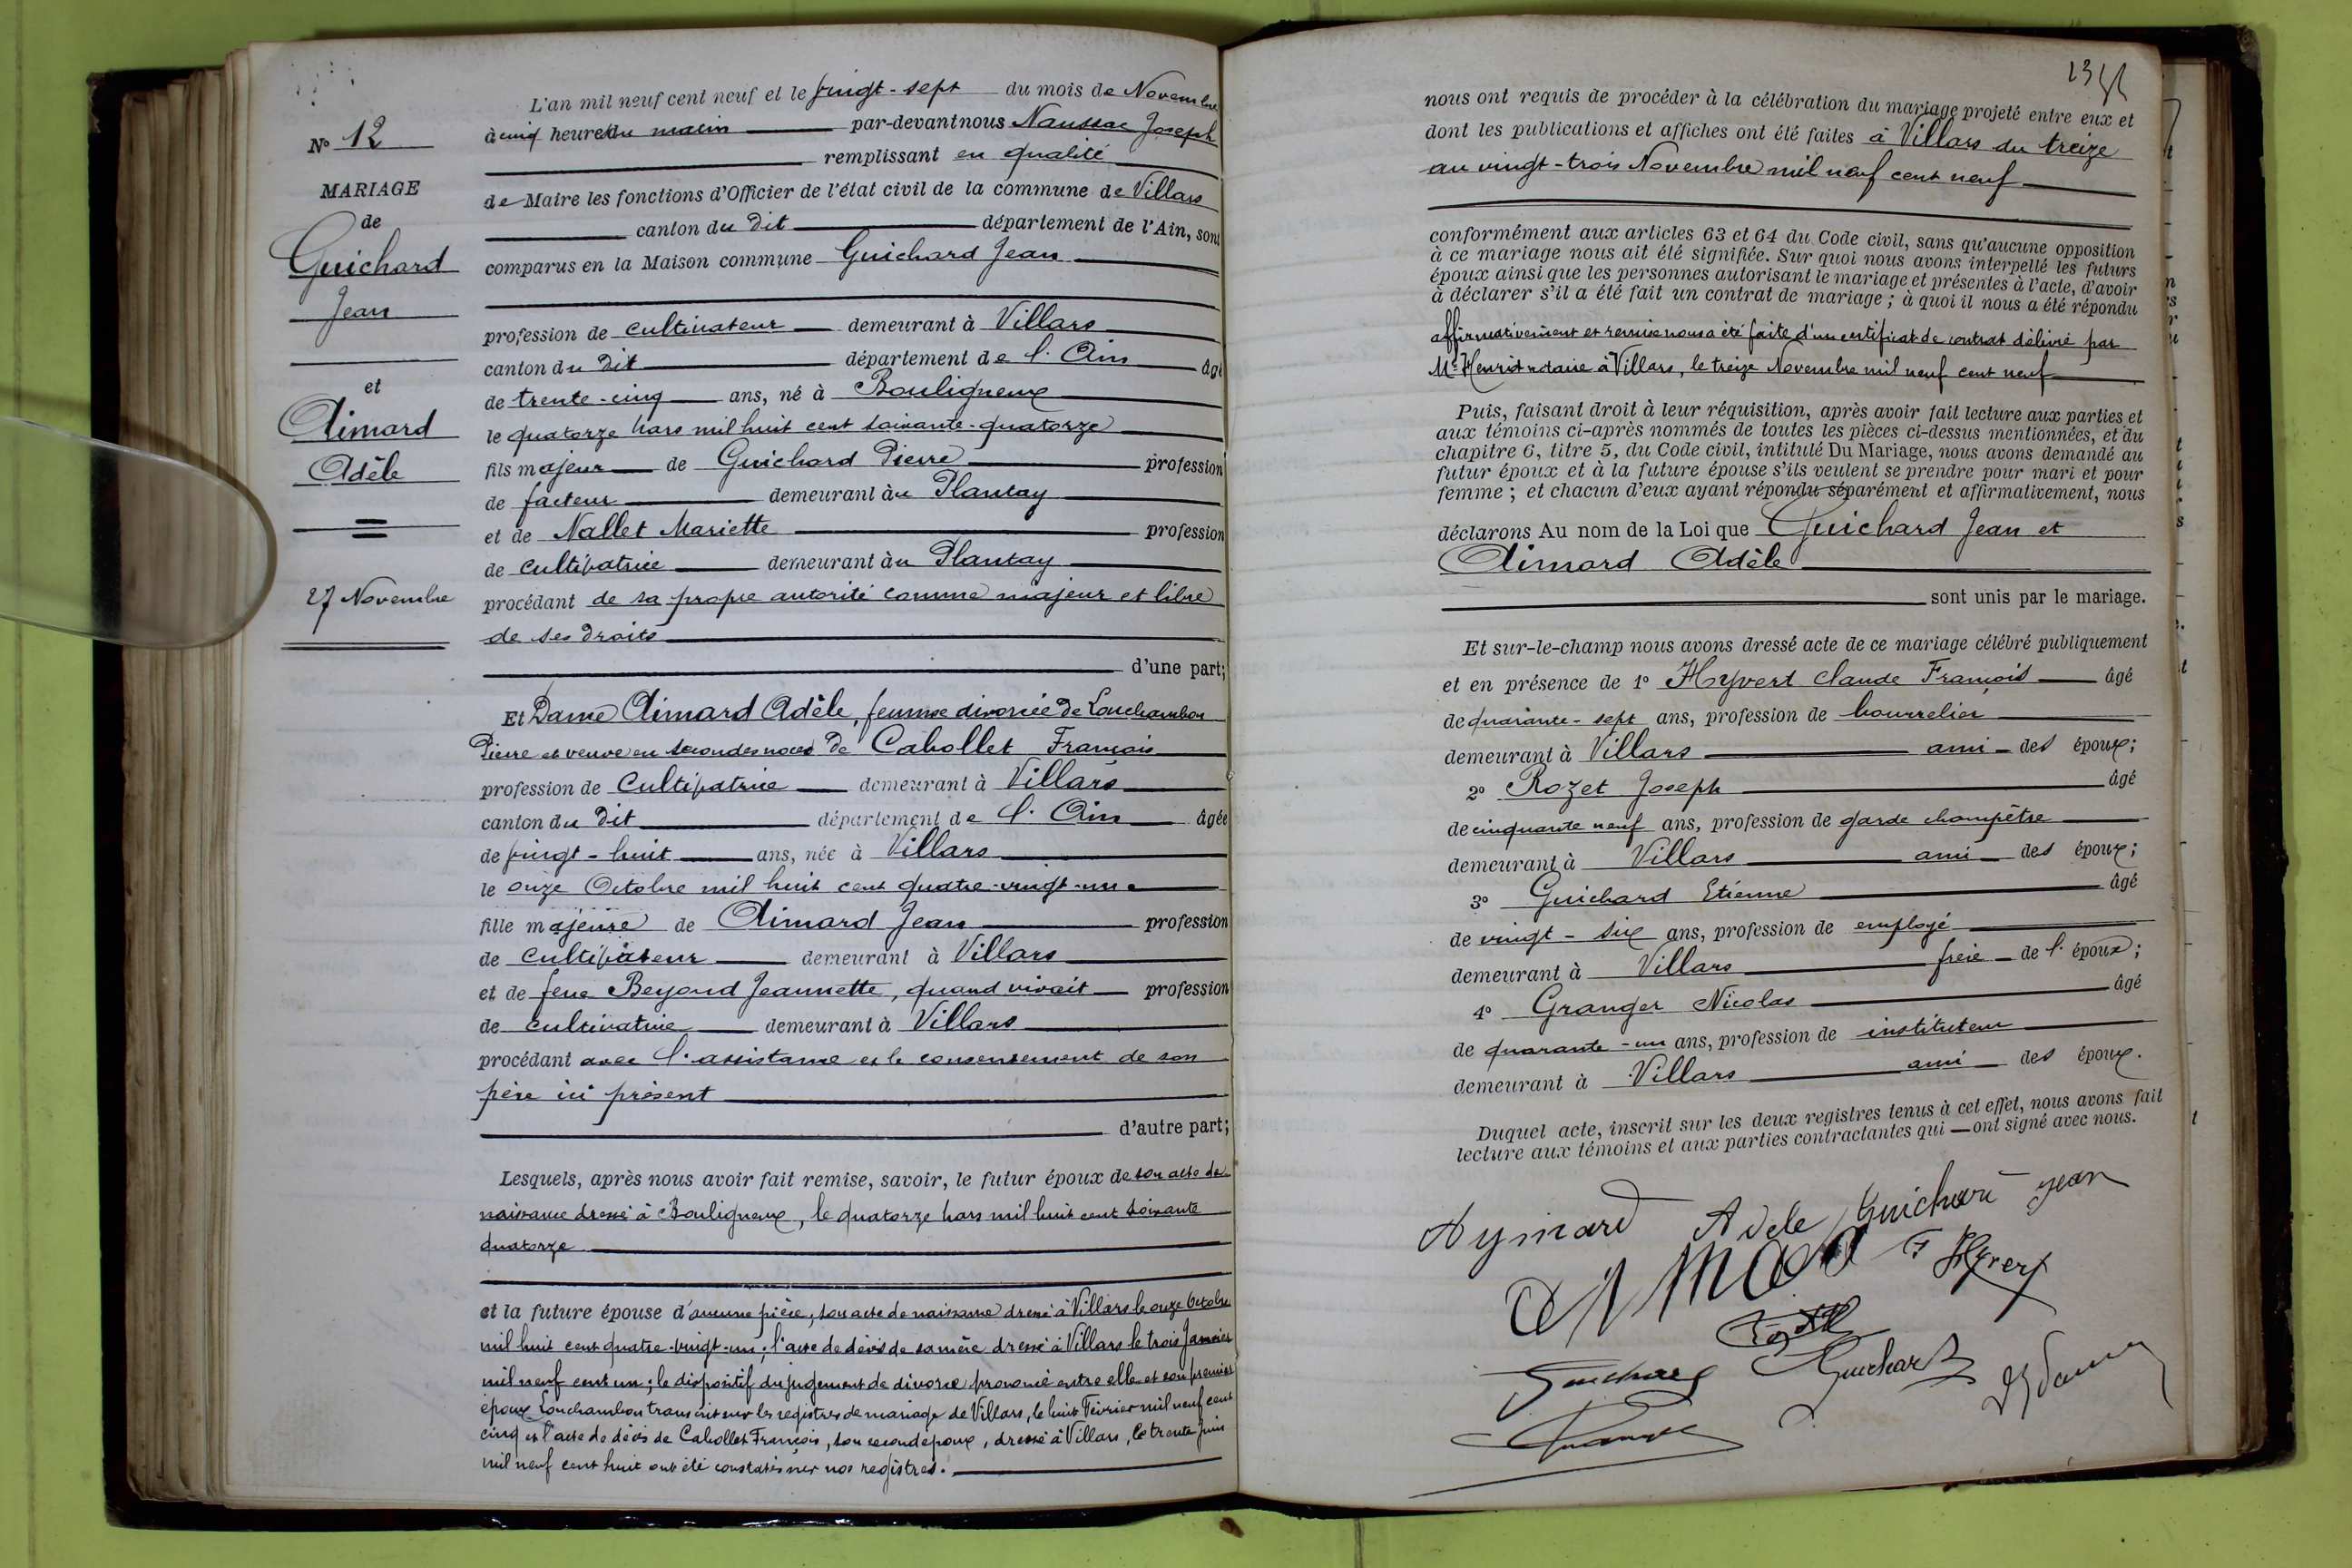 L'an mil neuf cent neuf et le vingt-sept du mois de Novembre
N° 12
à cinq heures du matin par-devant nous Naussac Joseph
remplissant en qualité
MARIAGE
de Maire les fonctions d'Officier de l'état civil de la commune de Villars
de
canton du dit département de l'Ain, sont
Guichard
comparus en la Maison commune Guichard Jean
Jean
profession de cultivateur demeurant à Villars
canton du dit département de l'Ain âgé
et
de trente-cinq ans, né à Bouligneux
Aimard
le quatorze Mars mil huit cent soixante-quatorze
Adèle
fils majeur de Guichard Pierre profession
de facteur demeurant àu Plantay
et de Nallet Mariette profession
de cultivatrice demeurant àu Plantay
27 Novembre
procédant de sa propre autorité comme majeur et libre
de ses droits
d'une part;
Et Dame Aimard Adèle, femme divorcée de Louchambon
Pierre et veuve en secondes noces de Cabollet François
profession de Cultivatrice demeurant à Villars
canton du dit département de l'Ain âgée
de vingt-huit ans, née à Villars
le onze Octobre mil huit cent quatre-vingt-un
fille majeure de Aimard Jean profession
de cultivateur demeurant à Villars
et de feue Beyond Jeannette, quand vivait profession
de cultivatrice demeurant à Villars
procédant avec l'assistance et le consentement de son
père ici présent
d'autre part;
Lesquels, après nous avoir fait remise, savoir, le futur époux de son acte de
naissance dressé à Bouligneux, le quatorze Mars mil huit cent soixante
quatorze
et la future épouse d'aucune pièce, son acte de naissance dressé à Villars le onze Octobre
mil huit cent quatre-vingt-un; l'acte de décès de sa mère dressé à Villars le trois Janvier
mil neuf cent un; le dispositif du jugement de divorce prononcé entre elle et son premier
époux Louchambon transcrit sur les registres de mariage de Villars, le huit Février mil neuf cent
cinq et l'acte de décès de Cabollet François, son second époux, dressé à Villars, le trente Juin
mil neuf cent huit ont été constatés sur nos registres.
nous ont requis de procéder à la célébration du mariage projeté entre eux et
dont les publications et affiches ont été faites à Villars du treize
au vingt-trois Novembre mil neuf cent neuf
conformément aux articles 63 et 64 du Code civil, sans qu'aucune opposition
à ce mariage nous ait été signifiée. Sur quoi nous avons interpellé les futurs
époux ainsi que les personnes autorisant le mariage et présentes à l'acte, d'avoir
à déclarer s'il a été fait un contrat de mariage; à quoi il nous a été répondu
affirmativement et remise nous a été faite d'un certificat de contrat délivré par
Me Henriot notaire à Villars, le treize Novembre mil neuf cent neuf
Puis, faisant droit à leur réquisition, après avoir fait lecture aux parties et
aux témoins ci-après nommés de toutes les pièces ci-dessus mentionnées, et du
chapitre 6, titre 5, du Code civil, intitulé Du Mariage, nous avons demandé au
futur époux et à la future épouse s'ils veulent se prendre pour mari et pour
femme; et chacun d'eux ayant répondu séparément et affirmativement, nous
déclarons Au nom de la Loi que Guichard Jean et
Aimard Adèle
sont unis par le mariage.
Et sur-le-champ nous avons dressé acte de ce mariage célébré publiquement
et en présence de 1° Hyvert Claude François âgé
de quarante-sept ans, profession de bourrelier
demeurant à Villars ami des époux;
2° Rozet Joseph âgé
de cinquante neuf ans, profession de garde champêtre
demeurant à Villars ami des époux;
3° Guichard Etienne âgé
de vingt-six ans, profession de employé
demeurant à Villars frère de l'époux;
4° Granger Nicolas âgé
de quarante-un ans, profession de instituteur
demeurant à Villars ami des époux.
Duquel acte, inscrit sur les deux registres tenus à cet effet, nous avons fait
lecture aux témoins et aux parties contractantes qui ont signé avec nous.
Aymard Adele Guichard Jean
F Hyvert
Guichard Guichard